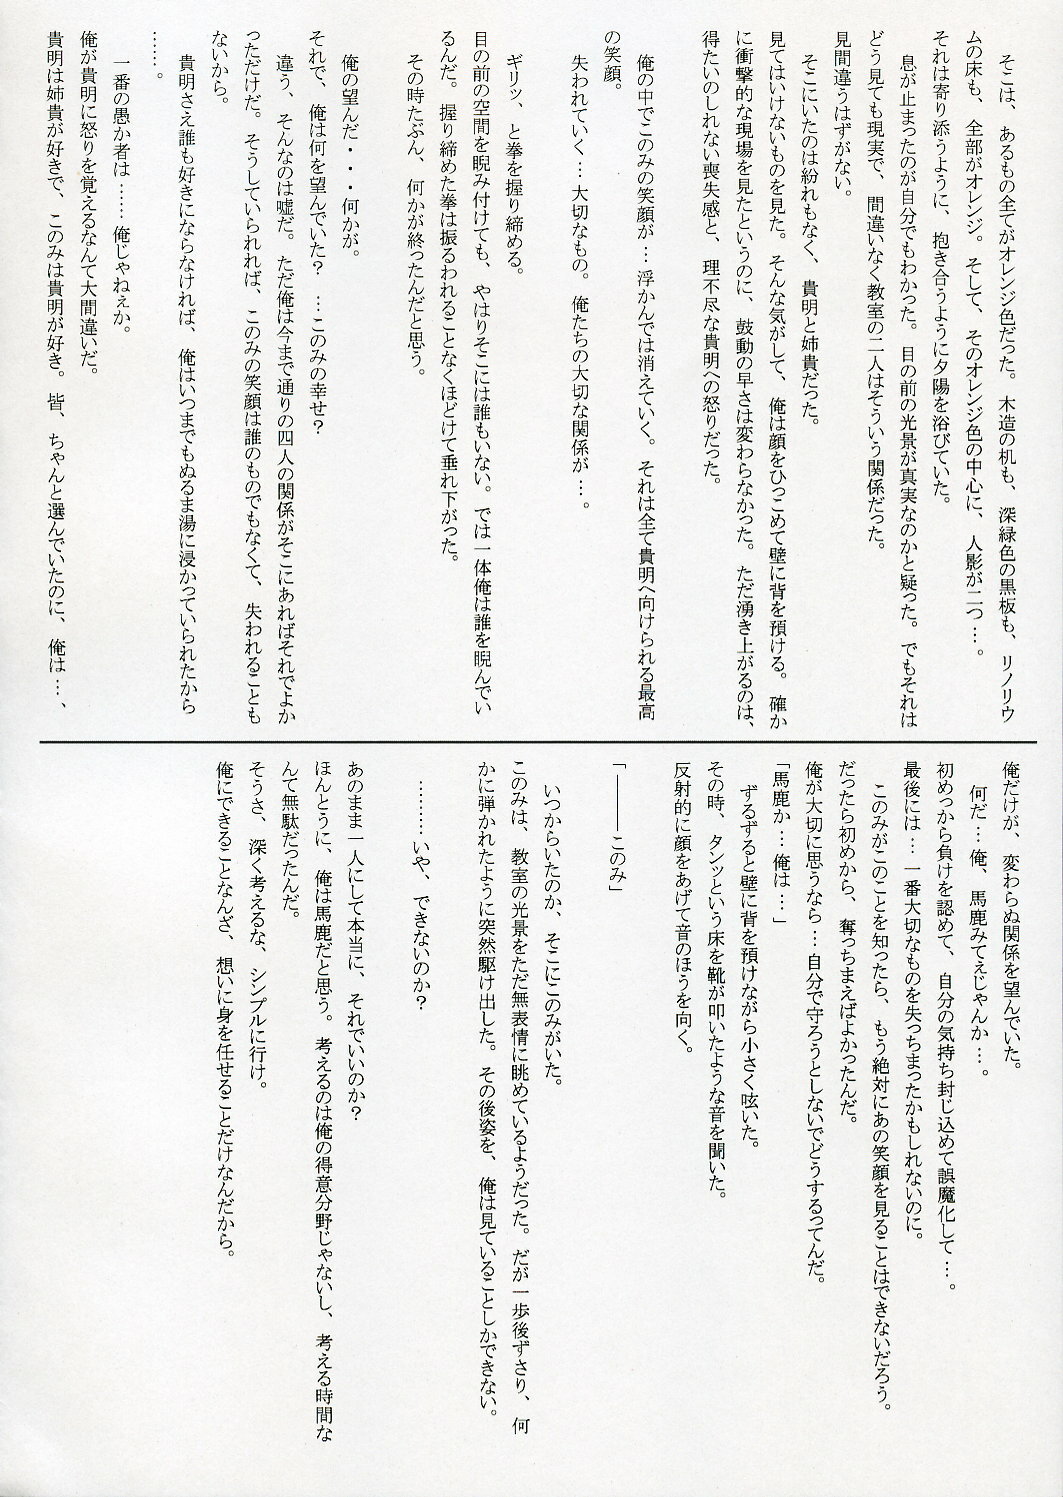 そこは、あるもの全てがオレンジ色だった。木造の机も、深緑色の黒板も、リノリウ
ムの床も、全部がオレンジ。そして、そのオレンジ色の中心に、人影が二つ…。
それは寄り添うように、抱き合うように夕陽を浴びていた。
　息が止まったのが自分でもわかった。目の前の光景が真実なのかと疑った。でもそれは
どう見ても現実で、間違いなく教室の二人はそういう関係だった。
見間違うはずがない。
　そこにいたのは紛れもなく、貴明と姉貴だった。
見てはいけないものを見た。そんな気がして、俺は顔をひっこめて壁に背を預ける。確か
に衝撃的な現場を見たというのに、鼓動の早さは変わらなかった。ただ湧き上がるのは、
得たいのしれない喪失感と、理不尽な貴明への怒りだった。
　俺の中でこのみの笑顔が…浮かんでは消えていく。それは全て貴明へ向けられる最高
の笑顔。
　失われていく…大切なもの。俺たちの大切な関係が…。
　ギリッ、と拳を握り締める。
目の前の空間を睨み付けても、やはりそこには誰もいない。では一体俺は誰を睨んでい
るんだ。握り締めた拳は振るわれることなくほどけて垂れ下がった。
　その時たぶん、何かが終ったんだと思う。
　俺の望んだ・・・何かが。
それで、俺は何を望んでいた？　…このみの幸せ？
　違う、そんなのは嘘だ。ただ俺は今まで通りの四人の関係がそこにあればそれでよか
っただけだ。そうしていられれば、このみの笑顔は誰のものでもなくて、失われることも
ないから。
　貴明さえ誰も好きにならなければ、俺はいつまでもぬるま湯に浸かっていられたから
……。
　一番の愚か者は……俺じゃねぇか。
俺が貴明に怒りを覚えるなんて大間違いだ。
貴明は姉貴が好きで、このみは貴明が好き。皆、ちゃんと選んでいたのに、俺は…、
俺だけが、変わらぬ関係を望んでいた。
　何だ…俺、馬鹿みてえじゃんか…。
初めっから負けを認めて、自分の気持ち封じ込めて誤魔化して…。
最後には…一番大切なものを失っちまったかもしれないのに。
　このみがこのことを知ったら、もう絶対にあの笑顔を見ることはできないだろう。
だったら初めから、奪っちまえばよかったんだ。
俺が大切に思うなら…自分で守ろうとしないでどうするってんだ。
「馬鹿か…俺は…」
　ずるずると壁に背を預けながら小さく呟いた。
その時、タンッという床を靴が叩いたような音を聞いた。
反射的に顔をあげて音のほうを向く。
「―――このみ」
　いつからいたのか、そこにこのみがいた。
このみは、教室の光景をただ無表情に眺めているようだった。だが一歩後ずさり、何
かに弾かれたように突然駆け出した。その後姿を、俺は見ていることしかできない。
　………いや、できないのか？
あのまま一人にして本当に、それでいいのか？
ほんとうに、俺は馬鹿だと思う。考えるのは俺の得意分野じゃないし、考える時間な
んて無駄だったんだ。
そうさ、深く考えるな、シンプルに行け。
俺にできることなんざ、想いに身を任せることだけなんだから。